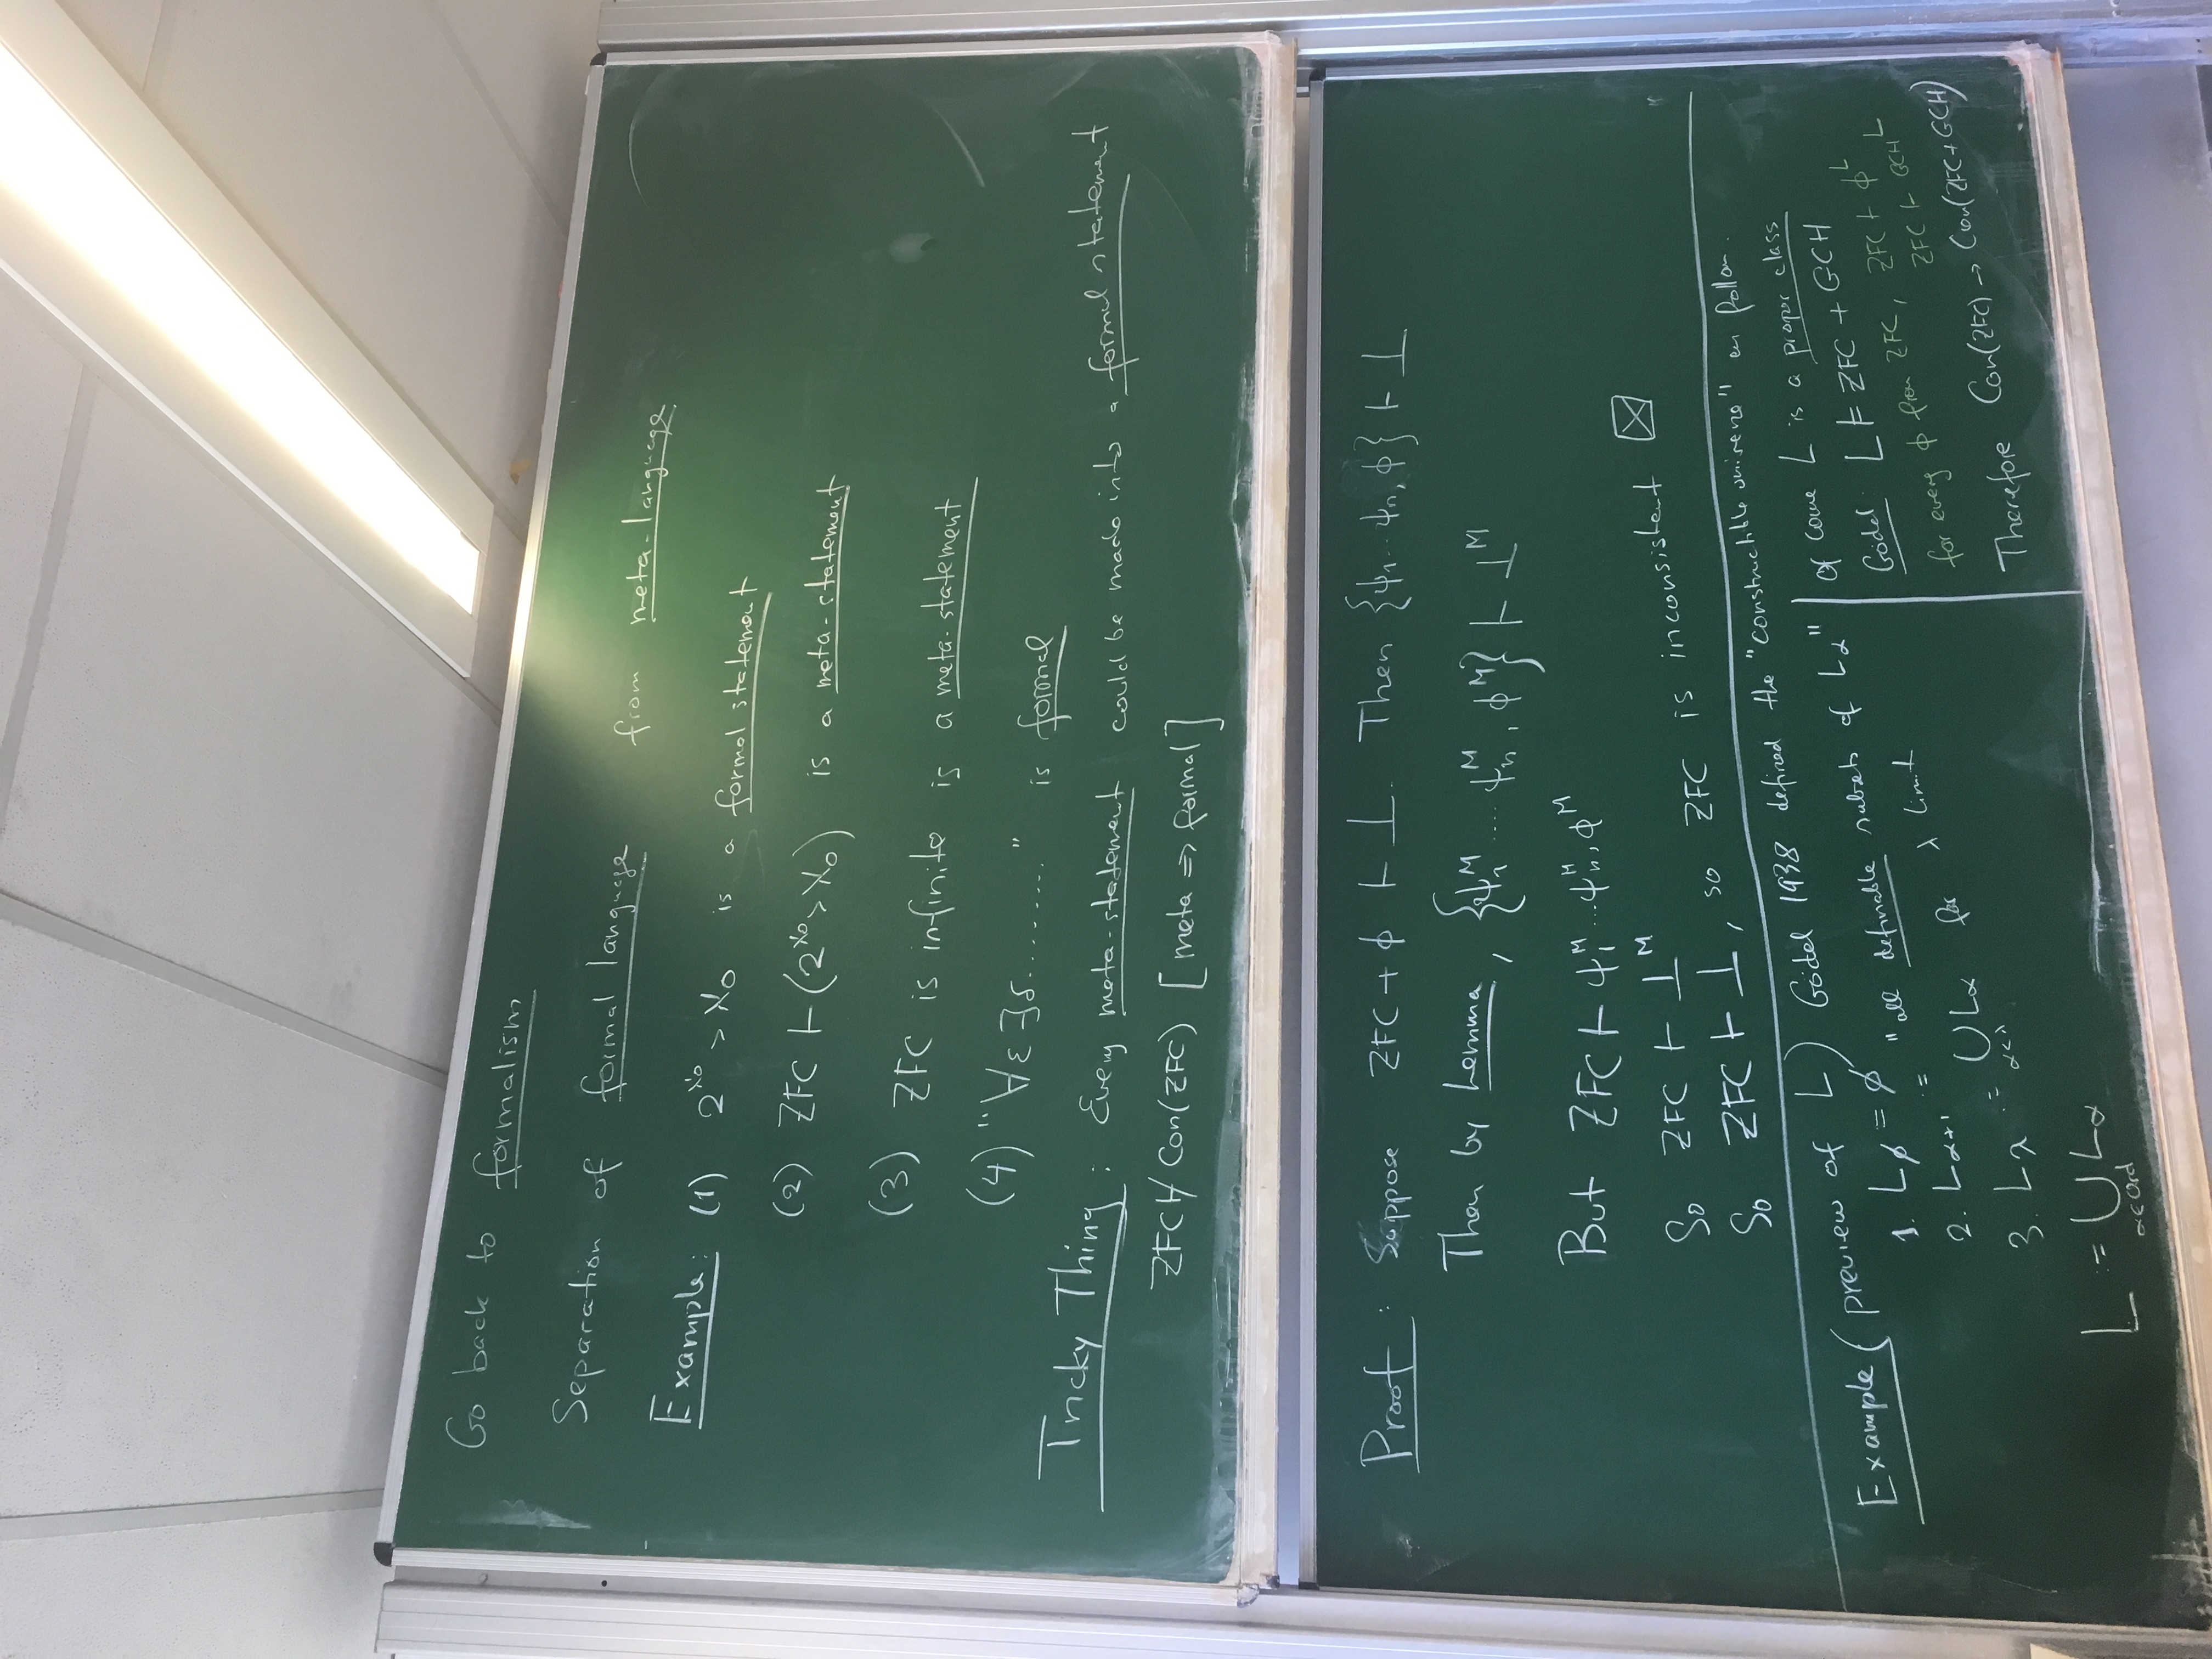 Go back to formalism
Separation of formal language from meta-language.
Example: (1) 2^ℵ₀ > ℵ₀ is a formal statement
(2) ZFC ⊢ (2^ℵ₀ > ℵ₀) is a meta-statement
(3) ZFC is infinite is a meta-statement
(4) "∀ε ∃δ........." is formal
Tricky Thing: Every meta-statement could be made into a formal statement
ZFC ⊬ Con(ZFC) [meta ⇒ formal]
Proof: Suppose ZFC + ϕ ⊢ ⊥. Then {ψ₁...ψₙ, ϕ} ⊢ ⊥
Then by Lemma, {ψ₁ᴹ.....ψₙᴹ, ϕᴹ} ⊢ ⊥ᴹ
But ZFC ⊢ ψ₁ᴹ...ψₙᴹ, ϕᴹ
So ZFC ⊢ ⊥ᴹ
So ZFC ⊢ ⊥, so ZFC is inconsistent ☒
Example (preview of L) Gödel 1938 defined the "constructible universe" as follows.
1. L∅ = ∅
2. Lα+1 := "all definable subsets of Lα"
3. Lλ := ⋃α<λ Lα for λ limit
L := ⋃α∈Ord Lα
Of course L is a proper class
Gödel: L ⊨ ZFC + GCH
for every ϕ from ZFC, ZFC ⊢ ϕᴸ
ZFC ⊢ GCHᴸ
Therefore Con(ZFC) → Con(ZFC+GCH)